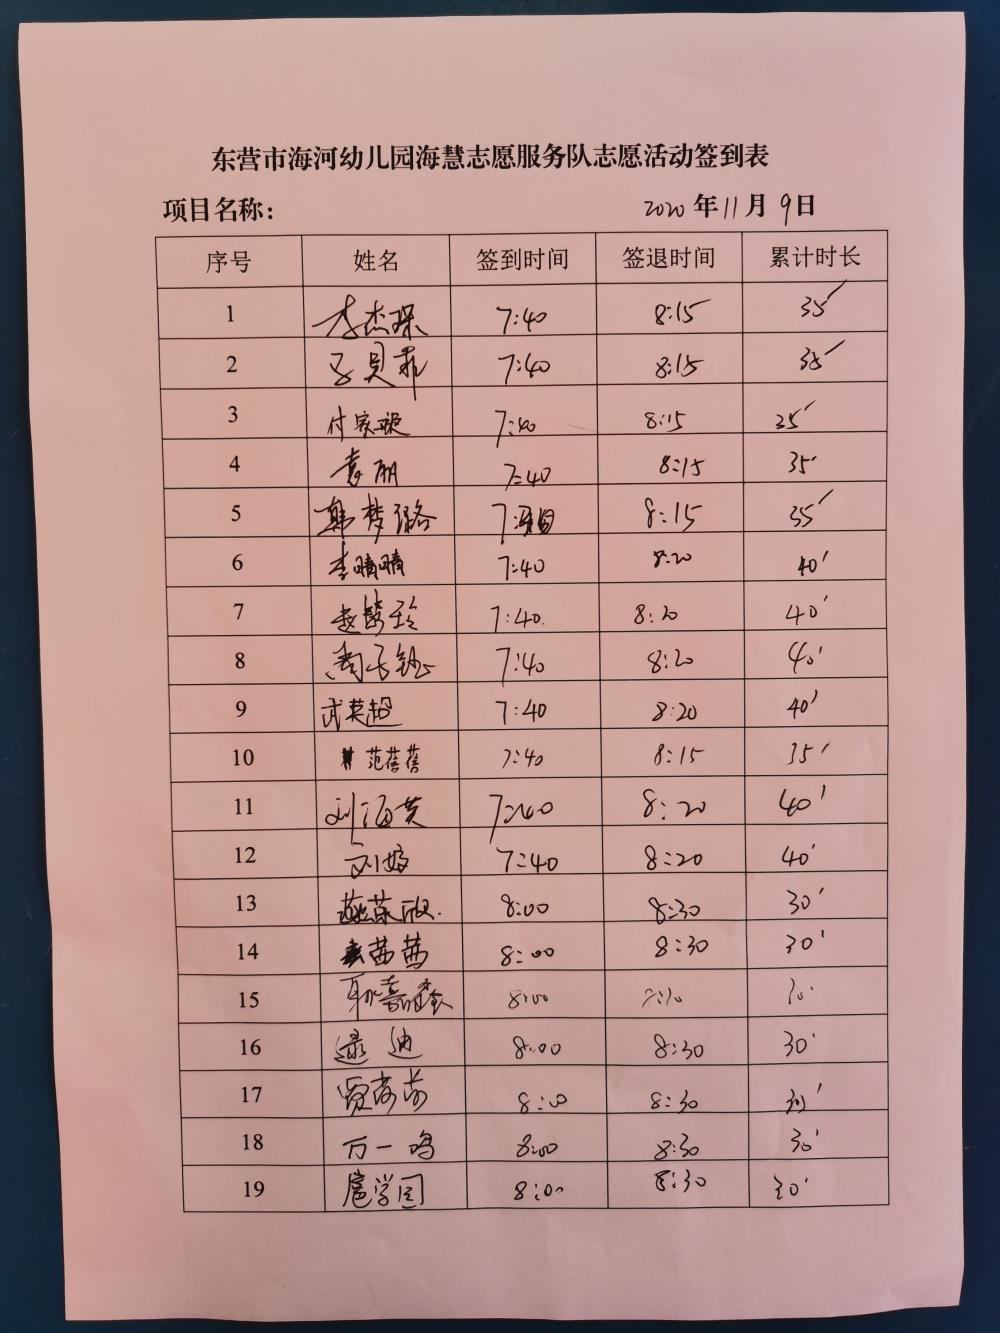 东营市海河幼儿园海慧志愿服务队志愿活动签到表
项目名称： 2020年11月9日
序号 姓名 签到时间 签退时间 累计时长
1 李杰琛 7:40 8:15 35′
2 贝 7:40 8:15 35′
3 付家璇 7:40 8:15 35′
4 袁丽 7:40 8:15 35′
5 韩梦璐 7: 8:15 35′
6 李晴晴 7:40 8:20 40′
7 赵梦玲 7:40 8:20 40′
8 周子钰 7:40 8:20 40′
9 武英超 7:40 8:20 40′
10 范蓓蓓 7:40 8:15 35′
11 刘海英 7:40 8:20 40′
12 刘婷 7:40 8:20 40′
13 荣欣 8:00 8:30 30′
14 茜茜 8:00 8:30 30′
15 耿 8:00
16 逯迪 8:00 8:30 30′
17 贾莎莎 8:00 8:30 30′
18 万一鸣 8:00 8:30 30′
19 扈学园 8:00 8:30 30′